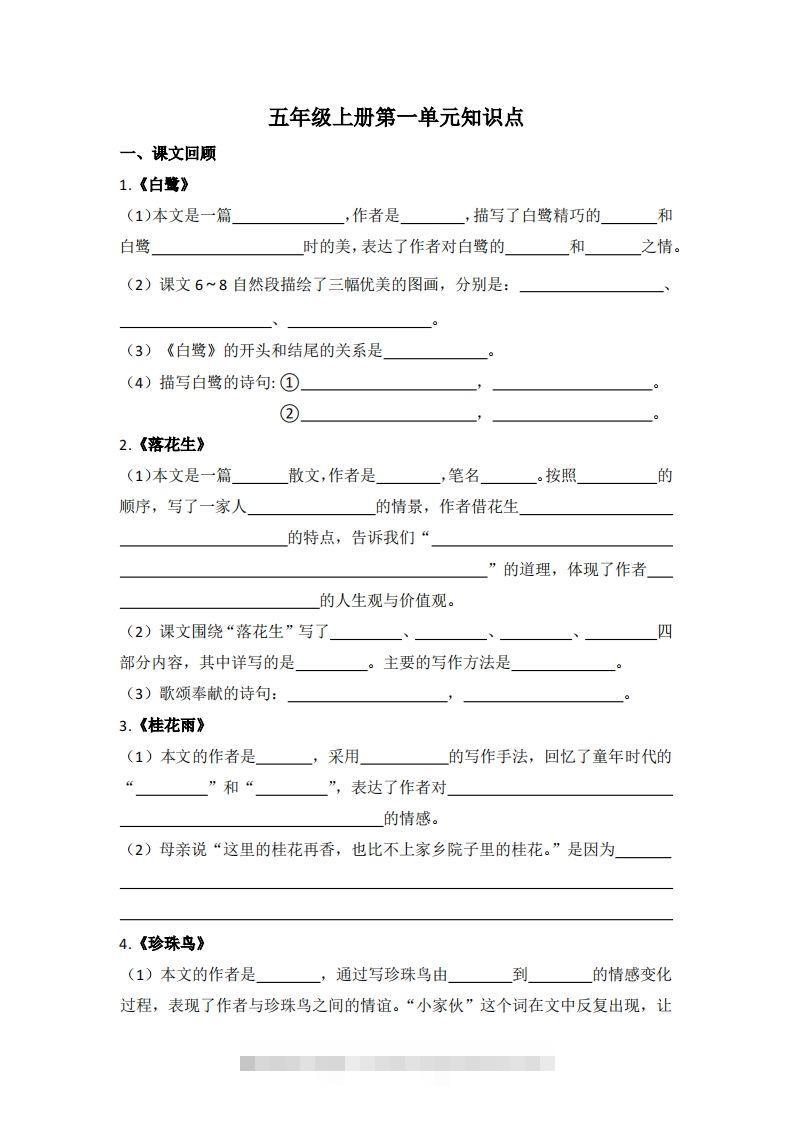 五年级上册第一单元知识点
一、课文回顾
1.《白鹭》
（1）本文是一篇______________，作者是________，描写了白鹭精巧的_______和
白鹭___________________时的美，表达了作者对白鹭的________和_______之情。
（2）课文 6～8 自然段描绘了三幅优美的图画，分别是：__________________、
___________________、__________________。
（3）《白鹭》的开头和结尾的关系是_____________。
（4）描写白鹭的诗句: ①______________________，____________________。
②______________________，____________________。
2.《落花生》
（1）本文是一篇_______散文，作者是________，笔名_______。按照__________的
顺序，写了一家人________________的情景，作者借花生___________________
_____________________的特点，告诉我们“______________________________
______________________________________________”的道理，体现了作者___
_________________________的人生观与价值观。
（2）课文围绕“落花生”写了_________、_________、_________、_________四
部分内容，其中详写的是_________。主要的写作方法是_____________。
（3）歌颂奉献的诗句：____________________，____________________。
3.《桂花雨》
（1）本文的作者是_______，采用___________的写作手法，回忆了童年时代的
“_________”和“_________”，表达了作者对____________________________
_________________________________的情感。
（2）母亲说“这里的桂花再香，也比不上家乡院子里的桂花。”是因为_______
_____________________________________________________________________
_____________________________________________________________________
4.《珍珠鸟》
（1）本文的作者是________，通过写珍珠鸟由________到________的情感变化
过程，表现了作者与珍珠鸟之间的情谊。“小家伙”这个词在文中反复出现，让